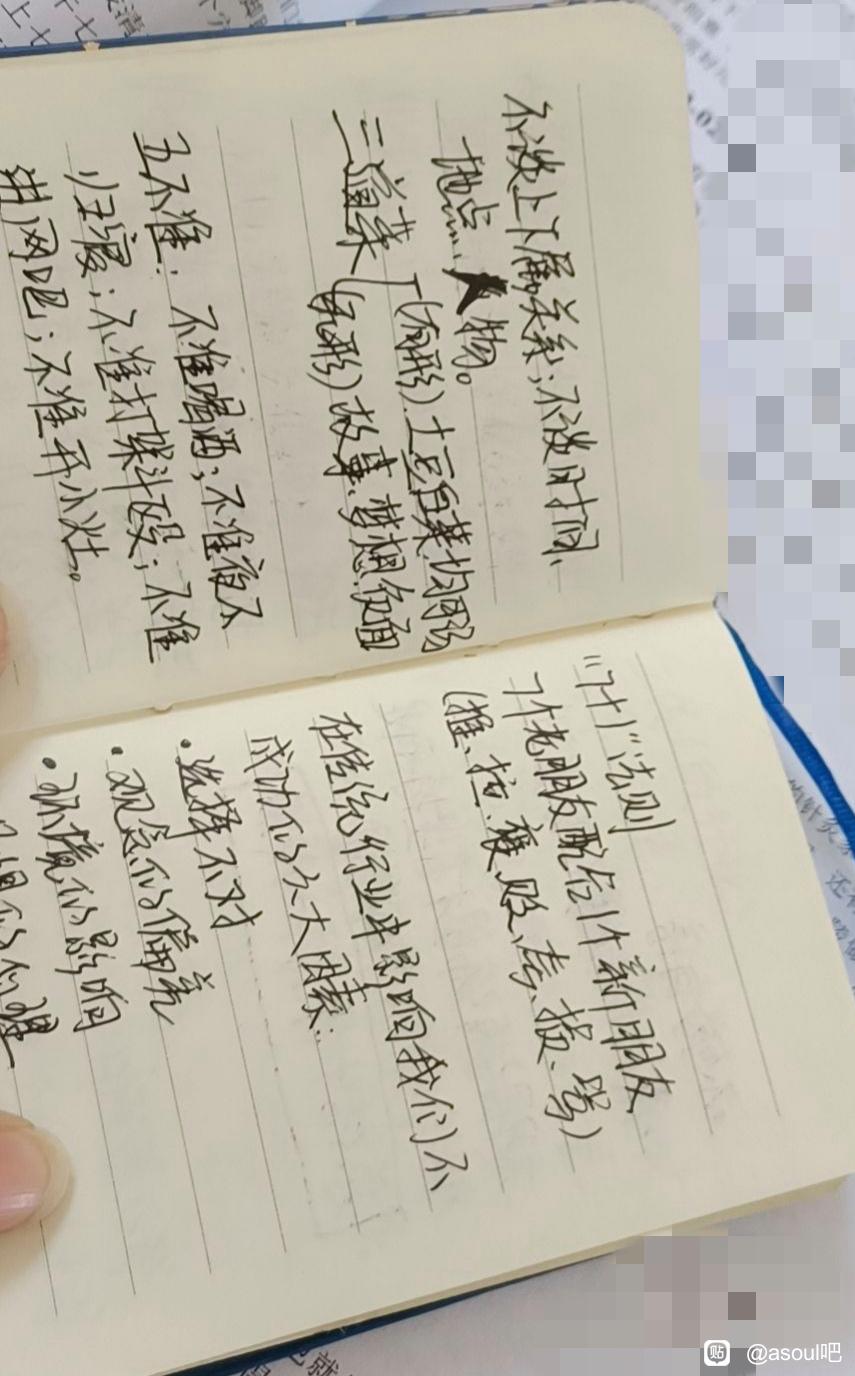 不谈上下属关系;不谈时间、
地点、人物。
三道菜「(有形)土豆白菜均可
(无形)故事、梦想、负面
五不准:不准喝酒;不准夜不
归寝;不准打架斗殴;不准
进网吧;不准开小灶。
"7+1"法则
7个老朋友配合1个新朋友
(推、拉、贬、损、骂)
在传统行业中影响我们不
成功的六大因素:
·选择不对
·观念的偏差
·环境的影响
@asoul吧